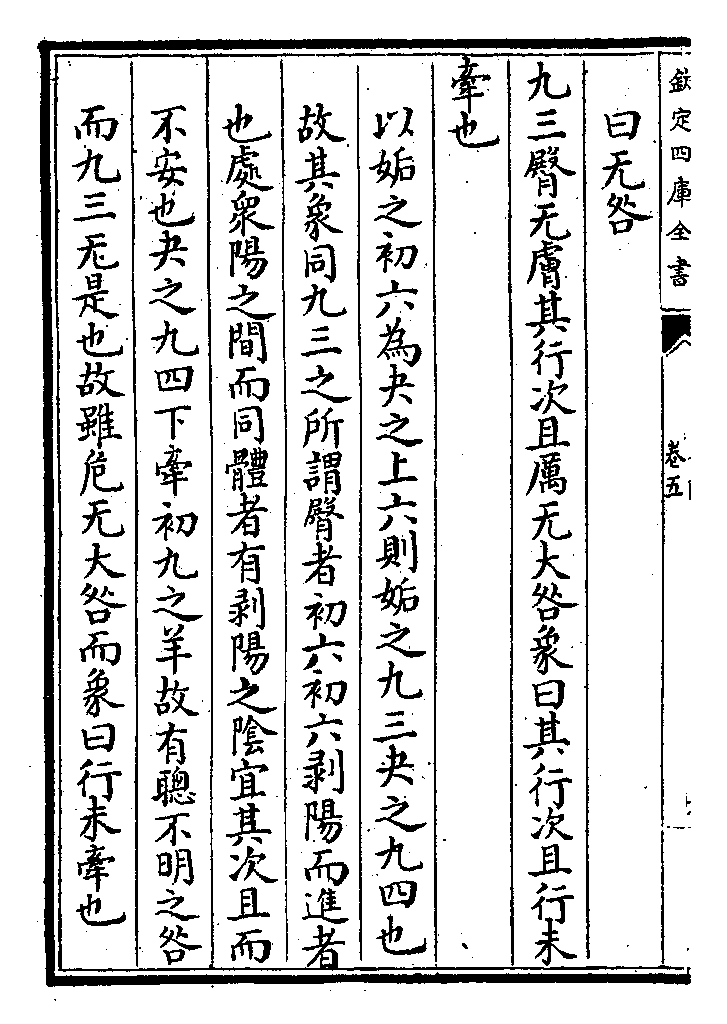 欽定四庫全書
卷五
曰无咎
九三臀无膚其行次且厲无大咎象曰其行次且行未
牽也
以姤之初六為夬之上六則姤之九三夬之九四也
故其象同九三之所謂臀者初六初六剥陽而進者
也處衆陽之間而同體者有剥陽之陰宜其次且而
不安也夬之九四下牽初九之羊故有聰不明之咎
而九三无是也故雖危无大咎而象曰行未牽也